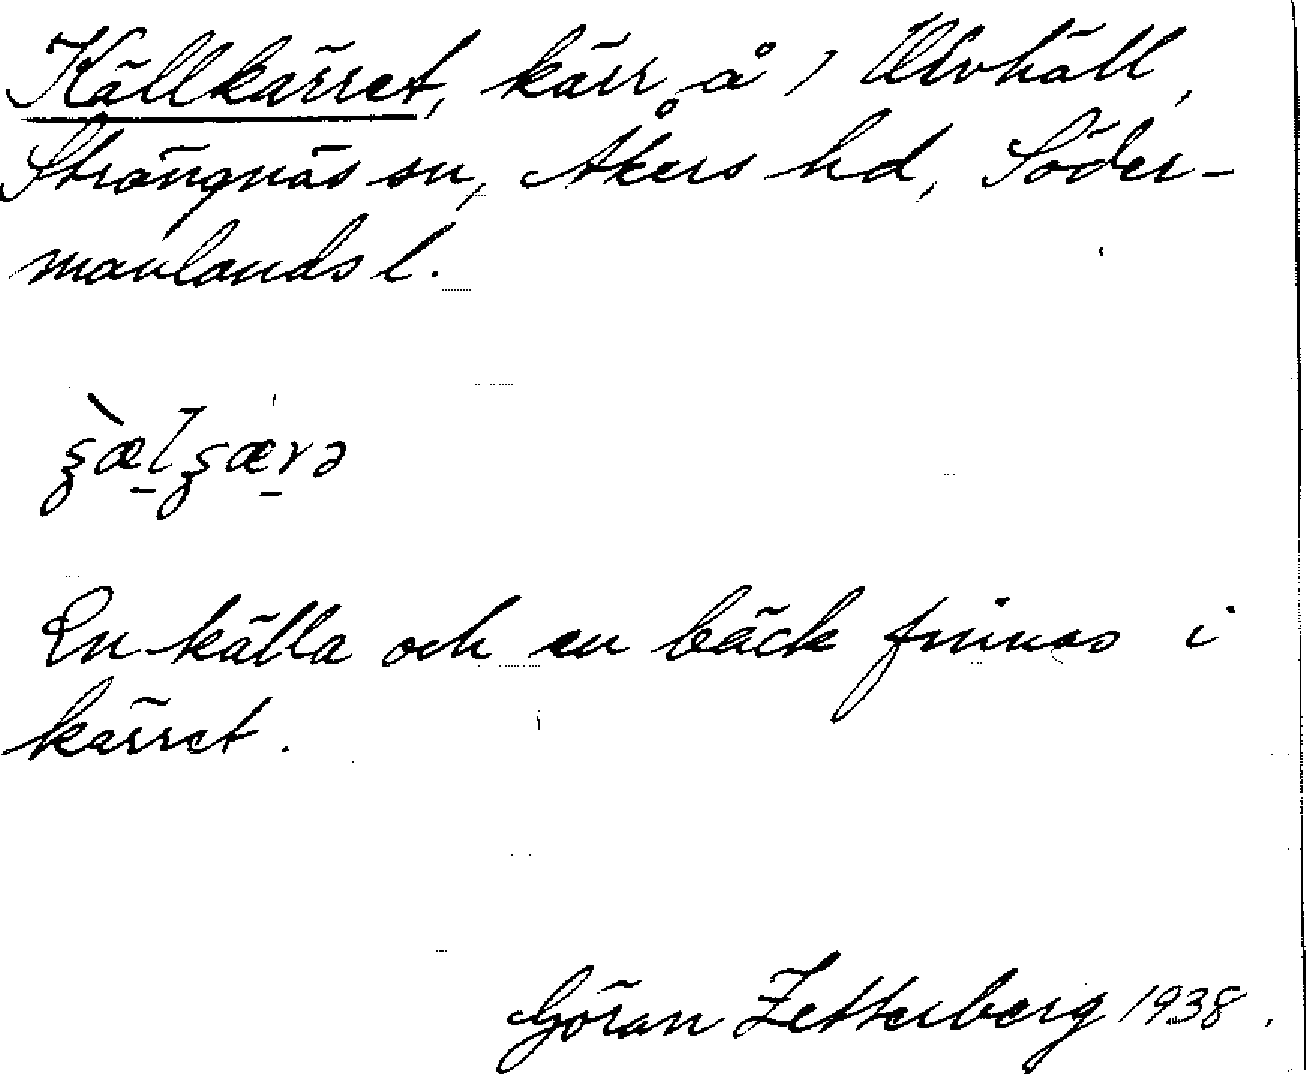 Källkärret, kärr å 1 Ulvhäll,
Strängnäs sn, Åkers hd, Söder-
manlands l.
En källa och en bäck finnas i
kärret.
Göran Zetterberg 1938.